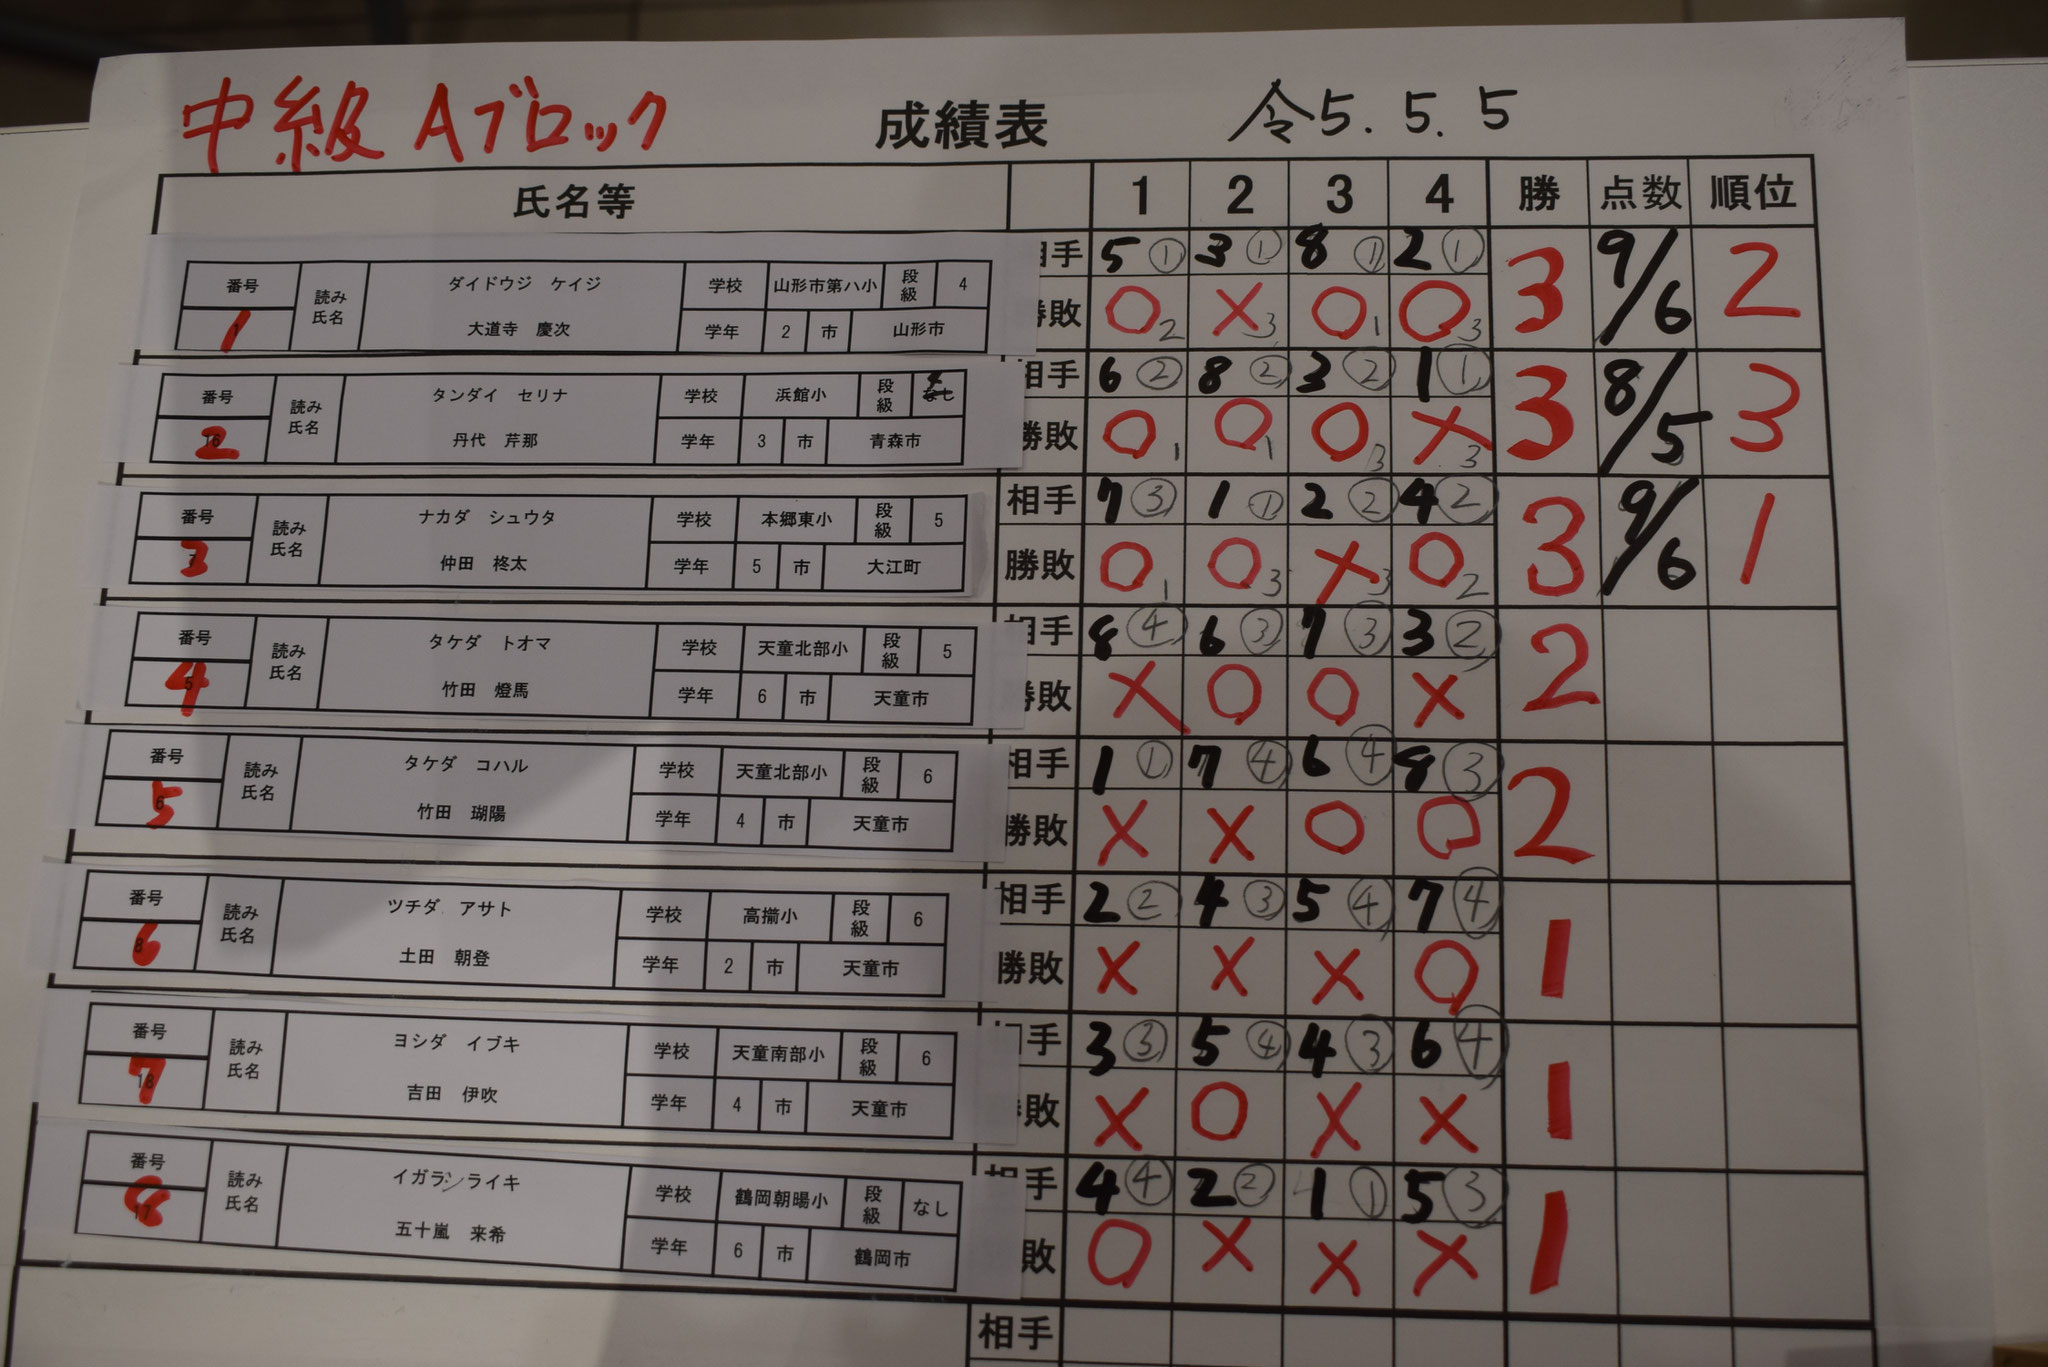 中級 Aブロック 成績表 令5.5.5
氏名等 1 2 3 4 勝 点数 順位
番号 読み ダイドウジ ケイジ 学校 山形市第八小 段級 4 相手 5① 3① 8① 2① 3 9/6 2
1 氏名 大道寺 慶次 学年 2 市 山形市 勝敗 ○2 ×3 ○1 ○3
番号 読み タンダイ セリナ 学校 浜館小 段級 なし 相手 6② 8② 3② 1① 3 8/5 3
2 氏名 丹代 芹那 学年 3 市 青森市 勝敗 ○1 ○1 ○3 ×3
番号 読み ナカダ シュウタ 学校 本郷東小 段級 5 相手 7③ 1① 2② 4② 3 9/6 1
3 氏名 仲田 柊太 学年 5 市 大江町 勝敗 ○1 ○3 ×3 ○2
番号 読み タケダ トオマ 学校 天童北部小 段級 5 相手 8④ 6③ 7③ 3② 2
4 氏名 竹田 燈馬 学年 6 市 天童市 勝敗 × ○ ○ ×
番号 読み タケダ コハル 学校 天童北部小 段級 6 相手 1① 7④ 6④ 8③ 2
5 氏名 竹田 瑚陽 学年 4 市 天童市 勝敗 × × ○ ○
番号 読み ツチダ アサト 学校 高擶小 段級 6 相手 2② 4③ 5④ 7④ 1
6 氏名 土田 朝登 学年 2 市 天童市 勝敗 × × × ○
番号 読み ヨシダ イブキ 学校 天童南部小 段級 6 相手 3③ 5④ 4③ 6④ 1
7 氏名 吉田 伊吹 学年 4 市 天童市 勝敗 × ○ × ×
番号 読み イガラシライキ 学校 鶴岡朝暘小 段級 なし 相手 4④ 2② 1① 5③ 1
8 氏名 五十嵐 来希 学年 6 市 鶴岡市 勝敗 ○ × × ×
相手